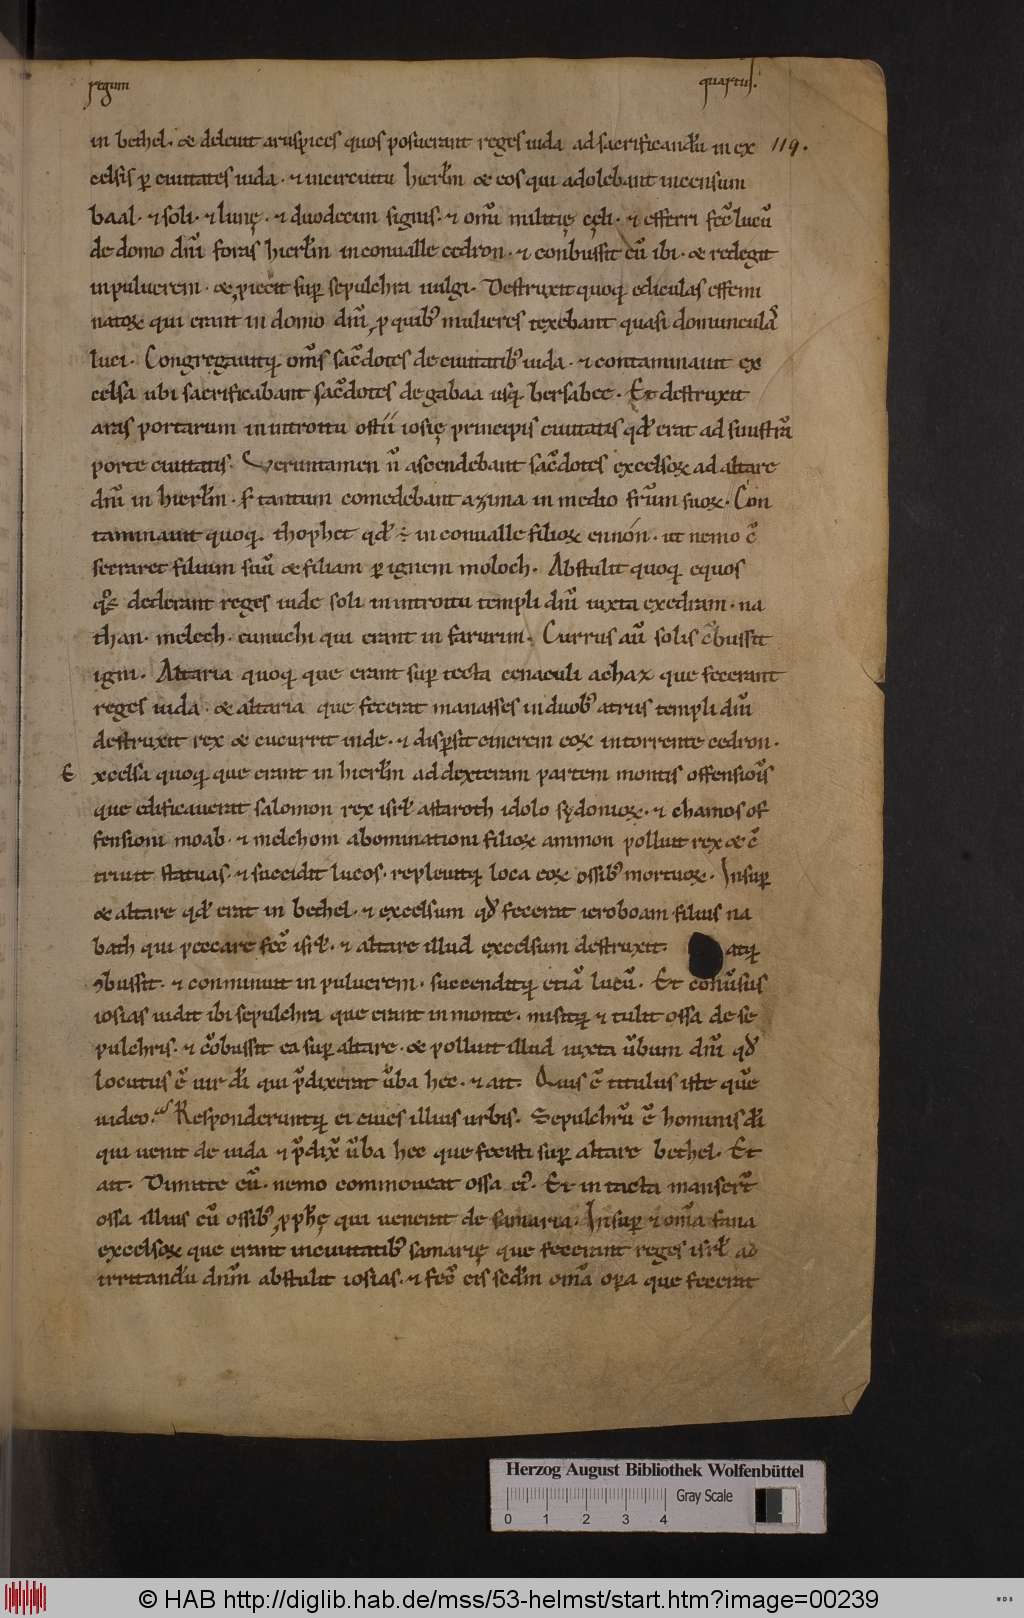 regum quartus.
in bethel. & deleuit aruspices quos posuerant reges iuda ad sacrificandũ in ex 119.
celsis ꝑ ciuitates iuda. ⁊ incircuitu hierłm & eos qui adolebant incensum
baal. ⁊ soli. ⁊ lunę. ⁊ duodecim signis. ⁊ om̃i militię cęli. ⁊ efferri fec̃ lucũ
de domo dñi foras hierłm inconualle cedron. ⁊ conbussit eũ ibi. & redegit
inpuluerem. & ꝓiecit sup̱ sepulchra uulgi. Destruxit quoq; ediculas effemi
natoꝝ qui erant in domo dñi, ꝓ quib; mulieres texebant quasi domunculas̃
luci. Congregauitq; om̃s sac̃dotes de ciuitatib; iuda. ⁊ contaminauit ex
celsa ubi sacrificabant sac̃dotes degabaa usq; bersabee. Et destruxit
aras portarum inintroitu ostii iosię principis ciuitatis qđ erat ad sinistrã
porte ciuitatis. Veruntamen ñ ascendebant sac̃dotes excelsoꝝ ad altare
dñi in hierłm. s; tantum comedebant azima in medio fr̃um suoꝝ. Con
taminauit quoq; thophet qđ ÷ in conualle filioꝝ ennón. ut nemo c̃
secraret filium suũ & filiam ꝑ ignem moloch. Abstulit quoq; equos
q̃s dederant reges iude soli inintroitu templi dñi iuxta exedram. na
than. melech. eunuchi qui erant in farurim. Currus aũ solis c̃bussit
igni. Altaria quoq; que erant sup̱ tecta cenaculi achax que fecerant
reges iuda. & altaria que fecerat manasses induob; atriis templi dñi
destruxit rex & cucurrit inde. ⁊ disp̱sit cinerem eoꝝ intorrente cedron.
Excelsa quoq; que erant in hierłm ad dexteram partem montis offensiõis
que edificauerat salomon rex isrł astaroth idolo sydonioꝝ. ⁊ chamos of
fensioni moab. ⁊ melchom abominationi filioꝝ ammon polluit rex & c̃
triuit statuas. ⁊ succidit lucos. repleuitq; loca eoꝝ ossib; mortuoꝝ. Insup̱
& altare qđ erat in bethel. ⁊ excelsum qđ fecerat ieroboam filius na
bath qui peccare fec̃ isrł. ⁊ altare illud excelsum destruxit. atq;
ꝯbussit. ⁊ conminuit in puluerem. succenditq; etiã lucũ. Et conũsus
iosias uidit ibi sepulchra que erant in monte. misitq; ⁊ tulit ossa de se
pulchris. ⁊ cõbussit ea sup̱ altare. & polluit illud iuxta ũbum dñi qđ
locutus ẽ uir dĩ qui p̃dixerat ũba hec. ⁊ ait. Quis ẽ titulus iste quẽ
uideo. Responderuntq; ei ciues illius urbis. Sepulchrũ ẽ hominis dĩ
qui uenit de iuda ⁊ p̃dix̃ ũba hec que fecisti sup̱ altare bethel. Et
ait. Dimitte eũ. nemo commoueat ossa eĩ. Et in tacta manser̃t
ossa illius cũ ossib; ꝓph̃ę qui uenerat de samaria. Insup̱ ⁊ om̃a fana
excelsoꝝ que erant inciuitatib; samarię que fecerant reges isrł ad
irritandũ dñm abstulit iosias. ⁊ fec̃ eis sedm̃ om̃a oꝑa que fecerat
Herzog August Bibliothek Wolfenbüttel
Gray Scale
0 1 2 3 4
© HAB http://diglib.hab.de/mss/53-helmst/start.htm?image=00239